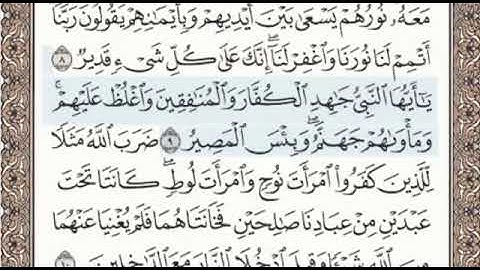 مَعَهُۥ نُورُهُمْ يَسْعَىٰ بَيْنَ أَيْدِيهِمْ وَبِأَيْمَٰنِهِمْ يَقُولُونَ رَبَّنَآ
أَتْمِمْ لَنَا نُورَنَا وَٱغْفِرْ لَنَآ ۖ إِنَّكَ عَلَىٰ كُلِّ شَىْءٍ قَدِيرٌ ٨
يَٰٓأَيُّهَا ٱلنَّبِىُّ جَٰهِدِ ٱلْكُفَّارَ وَٱلْمُنَٰفِقِينَ وَٱغْلُظْ عَلَيْهِمْ ۚ
وَمَأْوَىٰهُمْ جَهَنَّمُ ۖ وَبِئْسَ ٱلْمَصِيرُ ٩ ضَرَبَ ٱللَّهُ مَثَلًا
لِّلَّذِينَ كَفَرُوا۟ ٱمْرَأَتَ نُوحٍ وَٱمْرَأَتَ لُوطٍ ۖ كَانَتَا تَحْتَ
عَبْدَيْنِ مِنْ عِبَادِنَا صَٰلِحَيْنِ فَخَانَتَاهُمَا فَلَمْ يُغْنِيَا عَنْهُمَا
مِنَ ٱللَّهِ شَيْـًٔا وَقِيلَ ٱدْخُلَا ٱلنَّارَ مَعَ ٱلدَّٰخِلِينَ ١٠